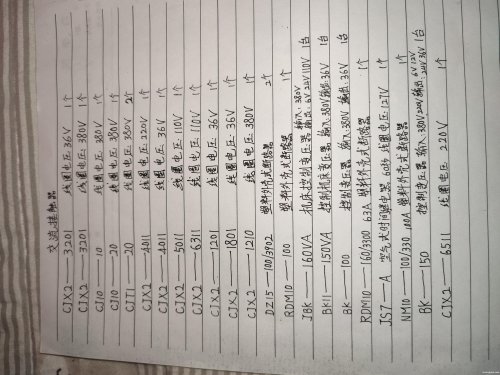 交流接触器
CJX2——3201 线圈电压 36V 1个
CJX2——3201 线圈电压 380V 1个
CJ10——10 线圈电压 380V 1个
CJ10——20 线圈电压 380V 1个
CJT1——20 线圈电压 380V 2个
CJX2——4011 线圈电压 220V 1个
CJX2——4011 线圈电压 36V 1个
CJX2——5011 线圈电压 110V 1个
CJX2——6311 线圈电压 110V 1个
CJX2——1201 线圈电压 36V 1个
CJX2——1801 线圈电压 36V 1个
CJX2——1210 线圈电压 380V 1个
DZ15——100/3902 塑料外壳式断路器 2个
RDM10——100 塑料外壳式断路器 1个
JBK——160VA 机床控制变压器 输入:380V 输出:6V 22V 110V 1台
BK11——150VA 控制机床变压器 输入380V 输出36V 1台
BK——100 控制变压器 输入380V 输出36V 1台
RDM10——160/3300 63A 塑料外壳式断路器 1个
JS7——A 空气式时间继电器 60秒 线圈电压127V 1个
NM10——100/330 100A 塑料外壳式断路器 1个
BK——150 控制变压器 输入:380V 220V 输出:6V 12V 24V 36V 1台
CJX2——6511 线圈电压 220V 1个